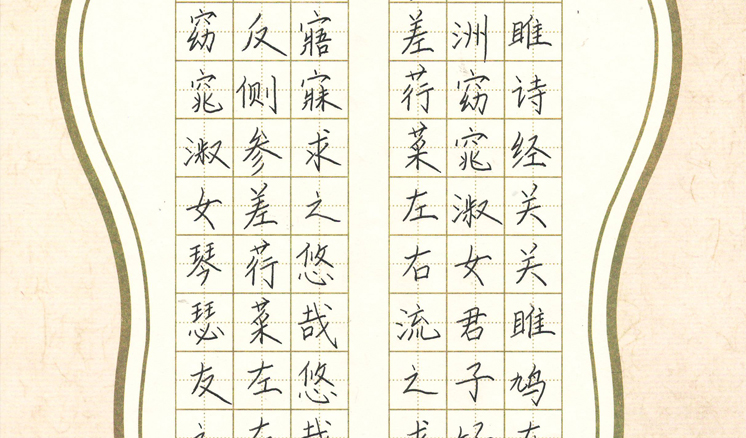 雎诗经关关雎鸠
洲窈窕淑女君子
差荇菜左右流之
寤寐求之悠哉悠
反侧参差荇菜左
窈窕淑女琴瑟友